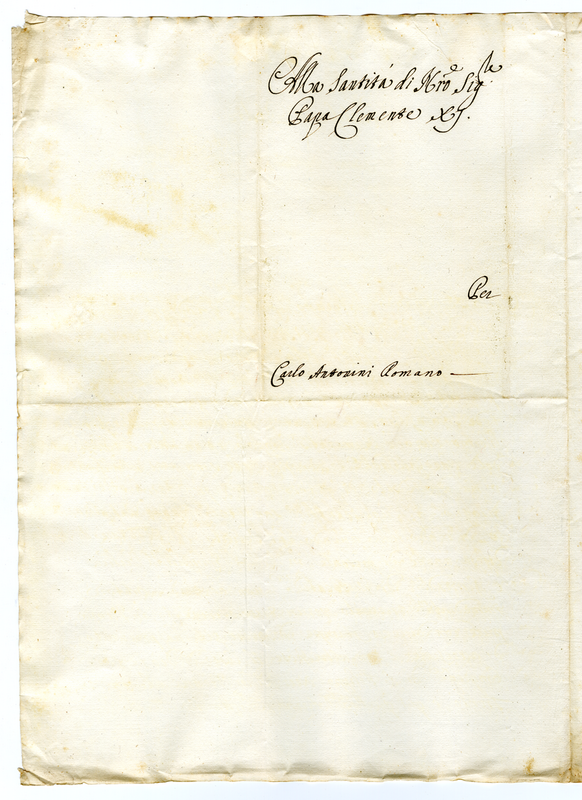 Alla Santità di Nrõ Sig.re
Papa Clemente XJ.
Per
Carlo Antonini Romano —